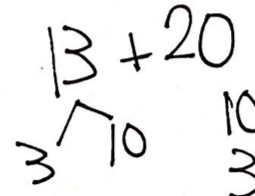 13 + 20
3 10
10
3